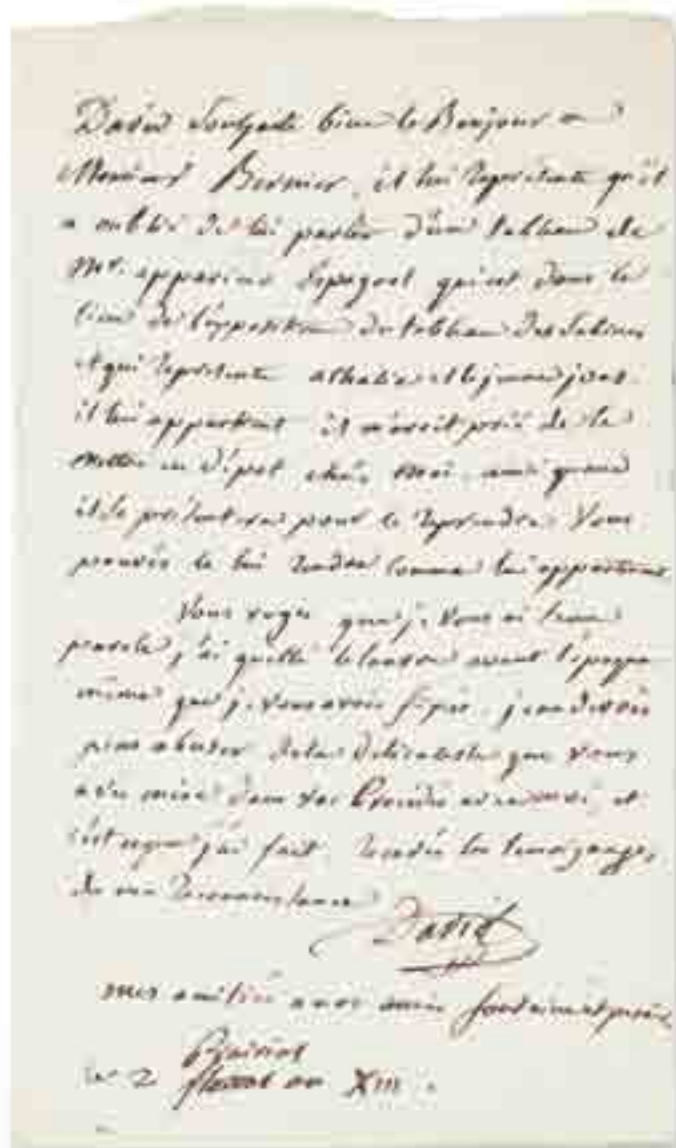 David Souhaite bien le Bonjour a
Monsieur Bernier, il lui représente qu'il
a oublié de lui parler d'un tableau de
Mr. apparicio Espagnol qui est dans le
lieu de l'exposition du tableau des Sabines
et qui représente athalie et le jeune joas.
il lui appartient il m'avoit prié de le
mettre en dépot chés moi. ainsi quand
il se présentera pour le reprendre Vous
pouvés le lui rendre comme lui appartenant
Vous voyés que je Vous ai tenu
parole j'ai quitté le louvre avant l'époque
même que je vous avois fixée. je ne devois
pas abuser de la délicatesse que vous
avés mise dans vos procédés avec moi, et
c'est ce que j'ai fait. recevés les temoignages
de ma reconnoissance
David
mes amitiés a nos amis fontaine et percier
ce 2
floreal an XIII.